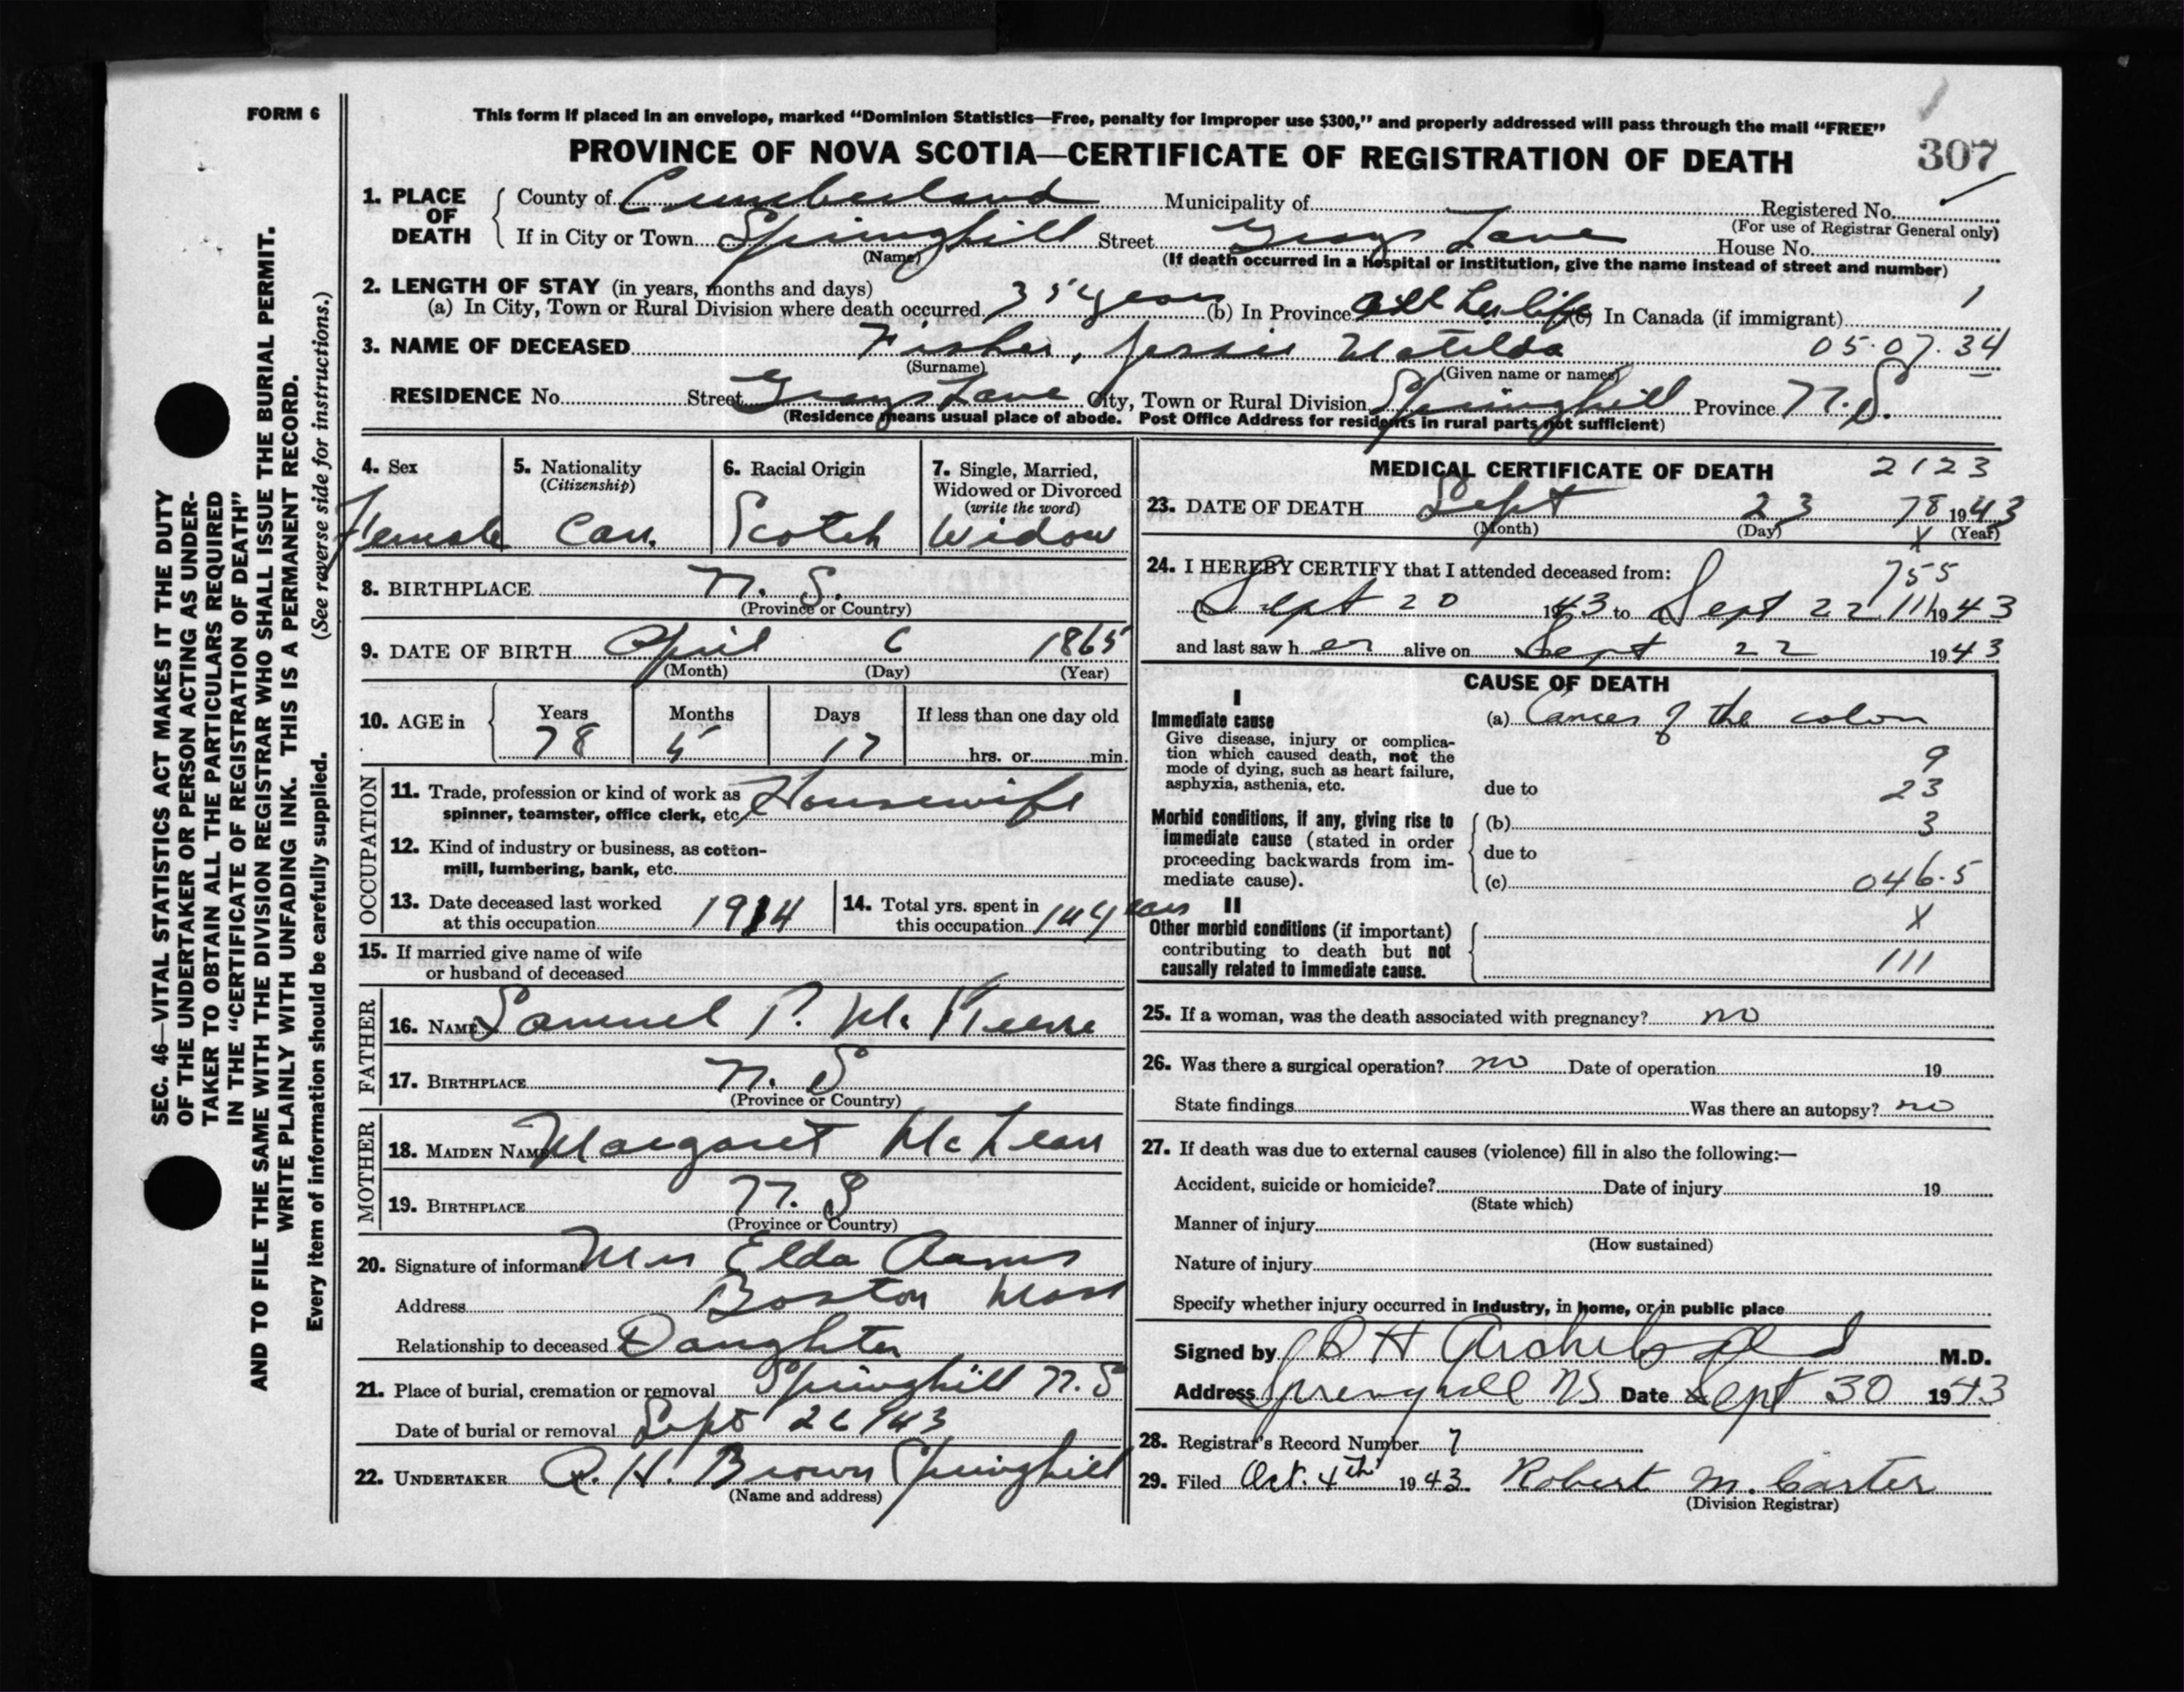 FORM 6
This form if placed in an envelope, marked “Dominion Statistics—Free, penalty for improper use $300,” and properly addressed will pass through the mail “FREE”
PROVINCE OF NOVA SCOTIA—CERTIFICATE OF REGISTRATION OF DEATH
307
1. PLACE OF DEATH
County of Cumberland Municipality of Registered No.
(For use of Registrar General only)
If in City or Town Springhill Street Grays Lane House No.
(Name) (If death occurred in a hospital or institution, give the name instead of street and number)
2. LENGTH OF STAY (in years, months and days)
(a) In City, Town or Rural Division where death occurred 35 years (b) In Province All her life (c) In Canada (if immigrant) 1
3. NAME OF DECEASED Fisher, Jessie Matilda 05.07.34
(Surname) (Given name or names)
RESIDENCE No. Street Grays Lane City, Town or Rural Division Springhill Province N.S.
(Residence means usual place of abode. Post Office Address for residents in rural parts not sufficient)
4. Sex
Female
5. Nationality
(Citizenship)
Can.
6. Racial Origin
Scotch
7. Single, Married,
Widowed or Divorced
(write the word)
Widow
8. BIRTHPLACE N. S.
(Province or Country)
9. DATE OF BIRTH April 6 1865
(Month) (Day) (Year)
10. AGE in Years Months Days If less than one day old
78 5 17 hrs. or min.
OCCUPATION
11. Trade, profession or kind of work as
spinner, teamster, office clerk, etc. Housewife
12. Kind of industry or business, as cotton-
mill, lumbering, bank, etc.
13. Date deceased last worked
at this occupation 1914
14. Total yrs. spent in
this occupation 14 years
15. If married give name of wife
or husband of deceased
FATHER
16. NAME Samuel P.
17. BIRTHPLACE N. S
(Province or Country)
MOTHER
18. MAIDEN NAME Margaret McLean
19. BIRTHPLACE N. S
(Province or Country)
20. Signature of informant Mrs Elda
Address Boston Mass
Relationship to deceased Daughter
21. Place of burial, cremation or removal Springhill N. S
Date of burial or removal Sept 26/43
22. UNDERTAKER H. Brown Springhill
(Name and address)
MEDICAL CERTIFICATE OF DEATH 2123
23. DATE OF DEATH Sept 23 78 1943
(Month) (Day) X (Year)
24. I HEREBY CERTIFY that I attended deceased from: 755
Sept 20 1943 to Sept 22 111 1943
and last saw her alive on Sept 22 1943
CAUSE OF DEATH
I
Immediate cause
Give disease, injury or complica-
tion which caused death, not the
mode of dying, such as heart failure,
asphyxia, asthenia, etc.
(a) Cancer of the colon
9
due to 23
Morbid conditions, if any, giving rise to
immediate cause (stated in order
proceeding backwards from im-
mediate cause).
(b) 3
due to
(c) 046.5
II X
Other morbid conditions (if important)
contributing to death but not
causally related to immediate cause.
111
25. If a woman, was the death associated with pregnancy? no
26. Was there a surgical operation? no Date of operation 19
State findings Was there an autopsy? no
27. If death was due to external causes (violence) fill in also the following:—
Accident, suicide or homicide? Date of injury 19
(State which)
Manner of injury
(How sustained)
Nature of injury
Specify whether injury occurred in industry, in home, or in public place
Signed by H Archibald M.D.
Address Springhill NS Date Sept 30 1943
28. Registrar's Record Number 7
29. Filed Oct. 4th 1943. Robert M. Carter
(Division Registrar)
SEC. 46—VITAL STATISTICS ACT MAKES IT THE DUTY
OF THE UNDERTAKER OR PERSON ACTING AS UNDER-
TAKER TO OBTAIN ALL THE PARTICULARS REQUIRED
IN THE “CERTIFICATE OF REGISTRATION OF DEATH”
AND TO FILE THE SAME WITH THE DIVISION REGISTRAR WHO SHALL ISSUE THE BURIAL PERMIT.
WRITE PLAINLY WITH UNFADING INK. THIS IS A PERMANENT RECORD.
Every item of information should be carefully supplied. (See reverse side for instructions.)